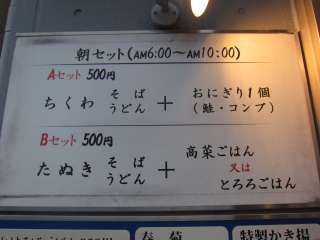 朝セット(AM6:00～AM10:00)
Aセット 500円
ちくわ そば うどん + おにぎり1個 (鮭・コンブ)
Bセット 500円
たぬき そば うどん + 高菜ごはん 又は とろろごはん
特製かき揚